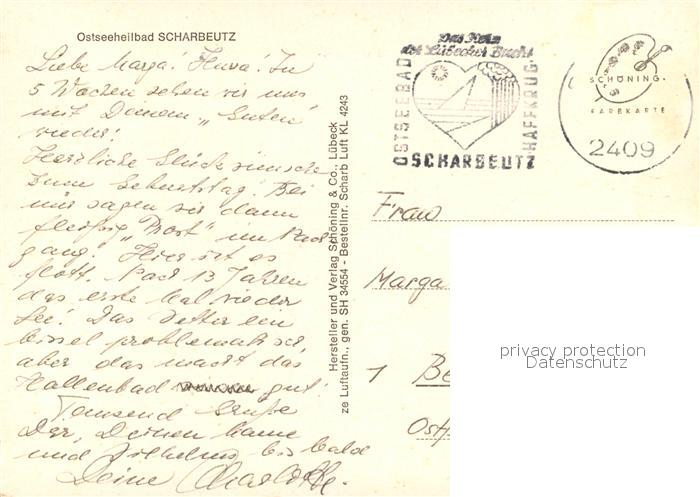 Ostseeheilbad SCHARBEUTZ
Liebe Marga! Hurra! In
5 Wochen sehen wir uns
mit Deinem „Guten"
wieder!
Herzliche Glückwünsche
zum Geburtstag! Bei
mir sagen wir dann
fleißig „Prost" im
gang! Hier ist es
flott. Nach 13 Jahren
das erste Mal wieder
See! Das Wetter ein
bissel problematisch,
aber das macht das
Hallenbad gut!
Tausend Grüße
Dir, Deinen
und bis bald
Deine Charlotte.
Hersteller und Verlag Schöning & Co., Lübeck
ze Luftaufn., gen. SH 34554 - Bestellnr. Scharb Luft KL 4243
Das Herz
der Lübecker Bucht
OSTSEEBAD
HAFFKRUG
SCHARBEUTZ
SCHÖNING
FARBKARTE
2409
Frau
Marga
1 Be
Ost
privacy protection
Datenschutz